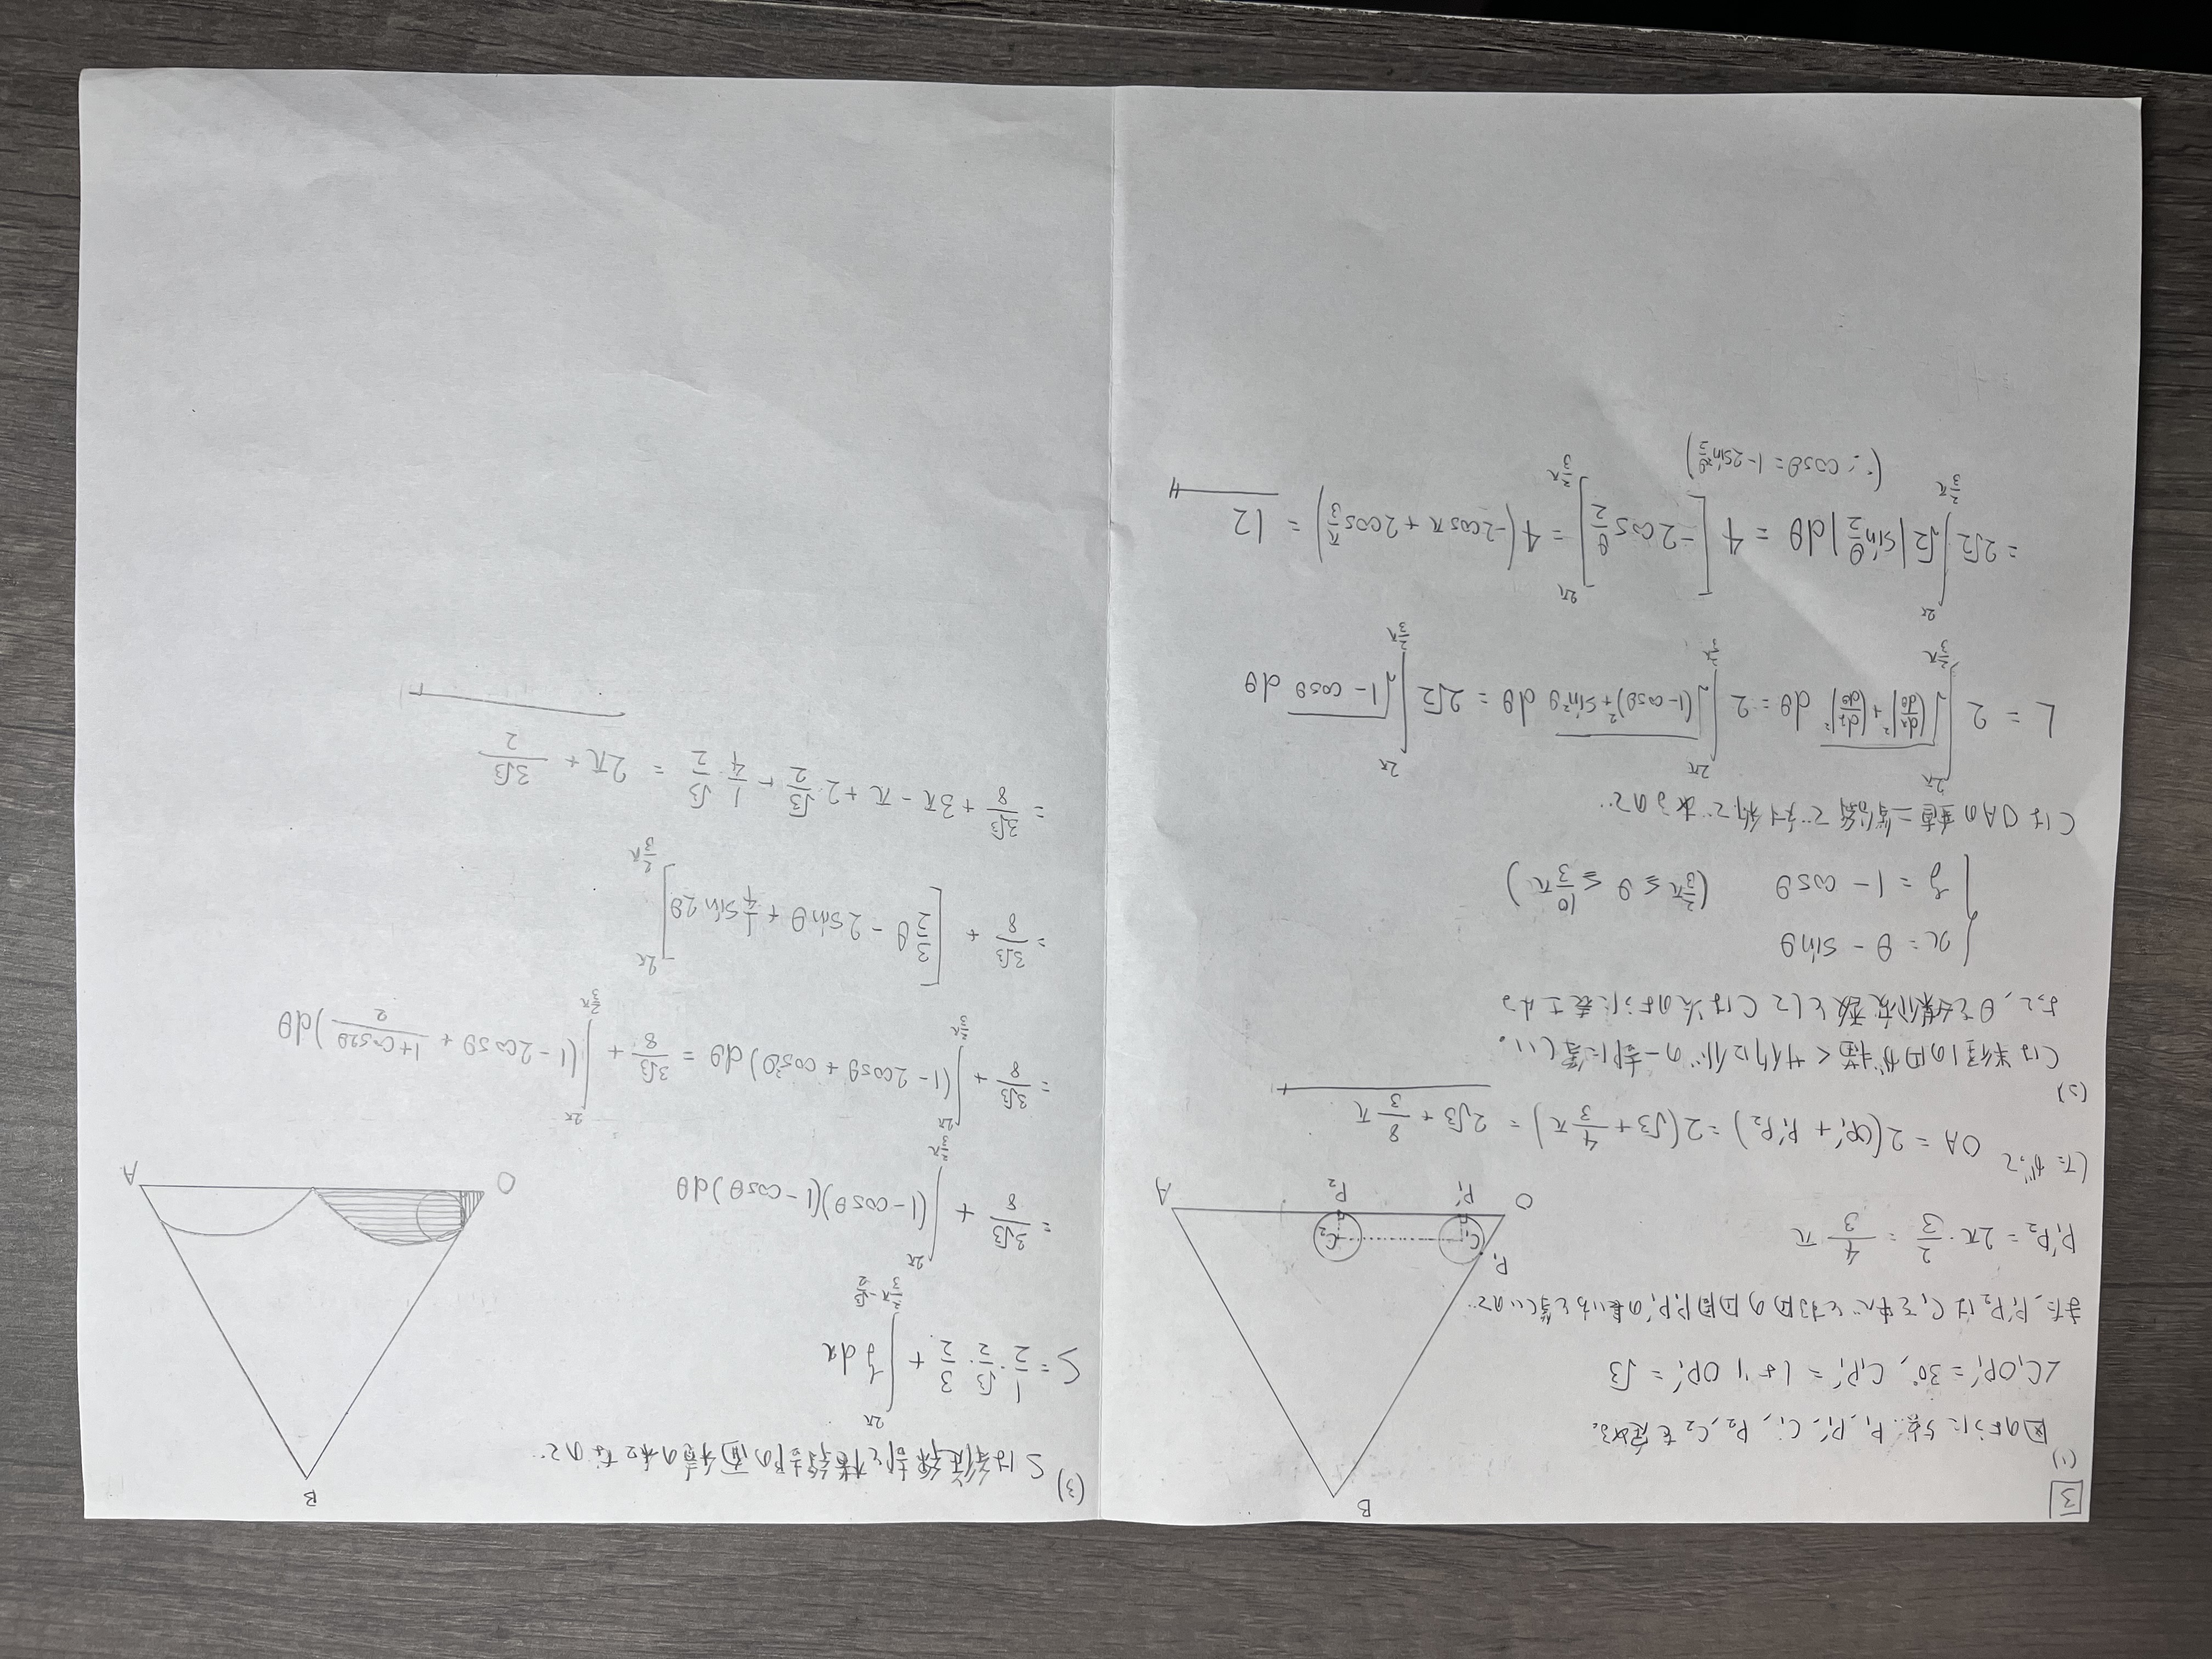 3
(1)
図のように5点 P₁, P₁', C₁, P₂, C₂ を定める。
∠C₁OP₁' = 30°, C₁P₁' = 1 より OP₁' = √3
また、P₁'P₂ は C₁ を中心とする円の円周 P₁P₁' の長いほうと等しいので
P₁'P₂ = 2π・2/3 = 4/3 π
したがって OA = 2(OP₁' + P₁'P₂) = 2(√3 + 4/3 π) = 2√3 + 8/3 π
B
P₁
C₁
C₂
O
P₁'
P₂
A
(2)
Cは半径1の円が描くサイクロイドの一部に等しい。
よって、θを媒介変数としてCは次のように表せる
{ x = θ - sinθ
y = 1 - cosθ (2/3 π ≦ θ ≦ 10/3 π)
CはOAの垂直二等分線で対称であるので
L = 2∫_{2/3 π}^{2π} √((dx/dθ)² + (dy/dθ)²) dθ = 2∫_{2/3 π}^{2π} √((1-cosθ)² + sin²θ) dθ = 2√2 ∫_{2/3 π}^{2π} √(1 - cosθ) dθ
= 2√2 ∫_{2/3 π}^{2π} √2 |sin θ/2| dθ = 4[-2cos θ/2]_{2/3 π}^{2π} = 4(-2cosπ + 2cos π/3) = 12
(∵ cosθ = 1 - 2sin² θ/2)
(3)
Sは縦線部と横線部の面積の和なので
S = 1/2・√3/2・3/2 + ∫_{2/3 π - √3/2}^{2π} y dx
= 3√3/8 + ∫_{2/3 π}^{2π} (1 - cosθ)(1 - cosθ) dθ
= 3√3/8 + ∫_{2/3 π}^{2π} (1 - 2cosθ + cos²θ) dθ = 3√3/8 + ∫_{2/3 π}^{2π} (1 - 2cosθ + (1 + cos2θ)/2) dθ
= 3√3/8 + [3/2 θ - 2sinθ + 1/4 sin2θ]_{2/3 π}^{2π}
= 3√3/8 + 3π - π + 2・√3/2 + 1/4・√3/2 = 2π + 3√3/2
B
O
A